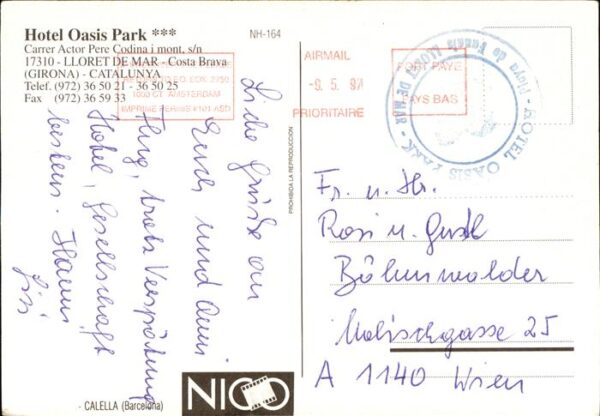 Hotel Oasis Park ***
Carrer Actor Pere Codina i mont, s/n
17310 - LLORET DE MAR - Costa Brava
(GIRONA) - CATALUNYA
Telef. (972) 36 50 21 - 36 50 25
Fax (972) 36 59 33
NH-164
1000 CT AMSTERDAM
AIRMAIL
-9. 5. 97
PRIORITAIRE
PORT PAYÉ
PAYS BAS
HOTEL OASIS PARK - LLORET DE MAR -
PROHIBIDA LA REPRODUCCIÓN
Liebe Grüße an
Euch und
Flug, trotz Verspätung
Hotel, Gesellschaft
bestens. Hanni
Gisi
Fr. u. Hr.
Rosi u. Gustl
Böhmwalder
Molischgasse 25
A 1140 Wien
NICO
- CALELLA (Barcelona)